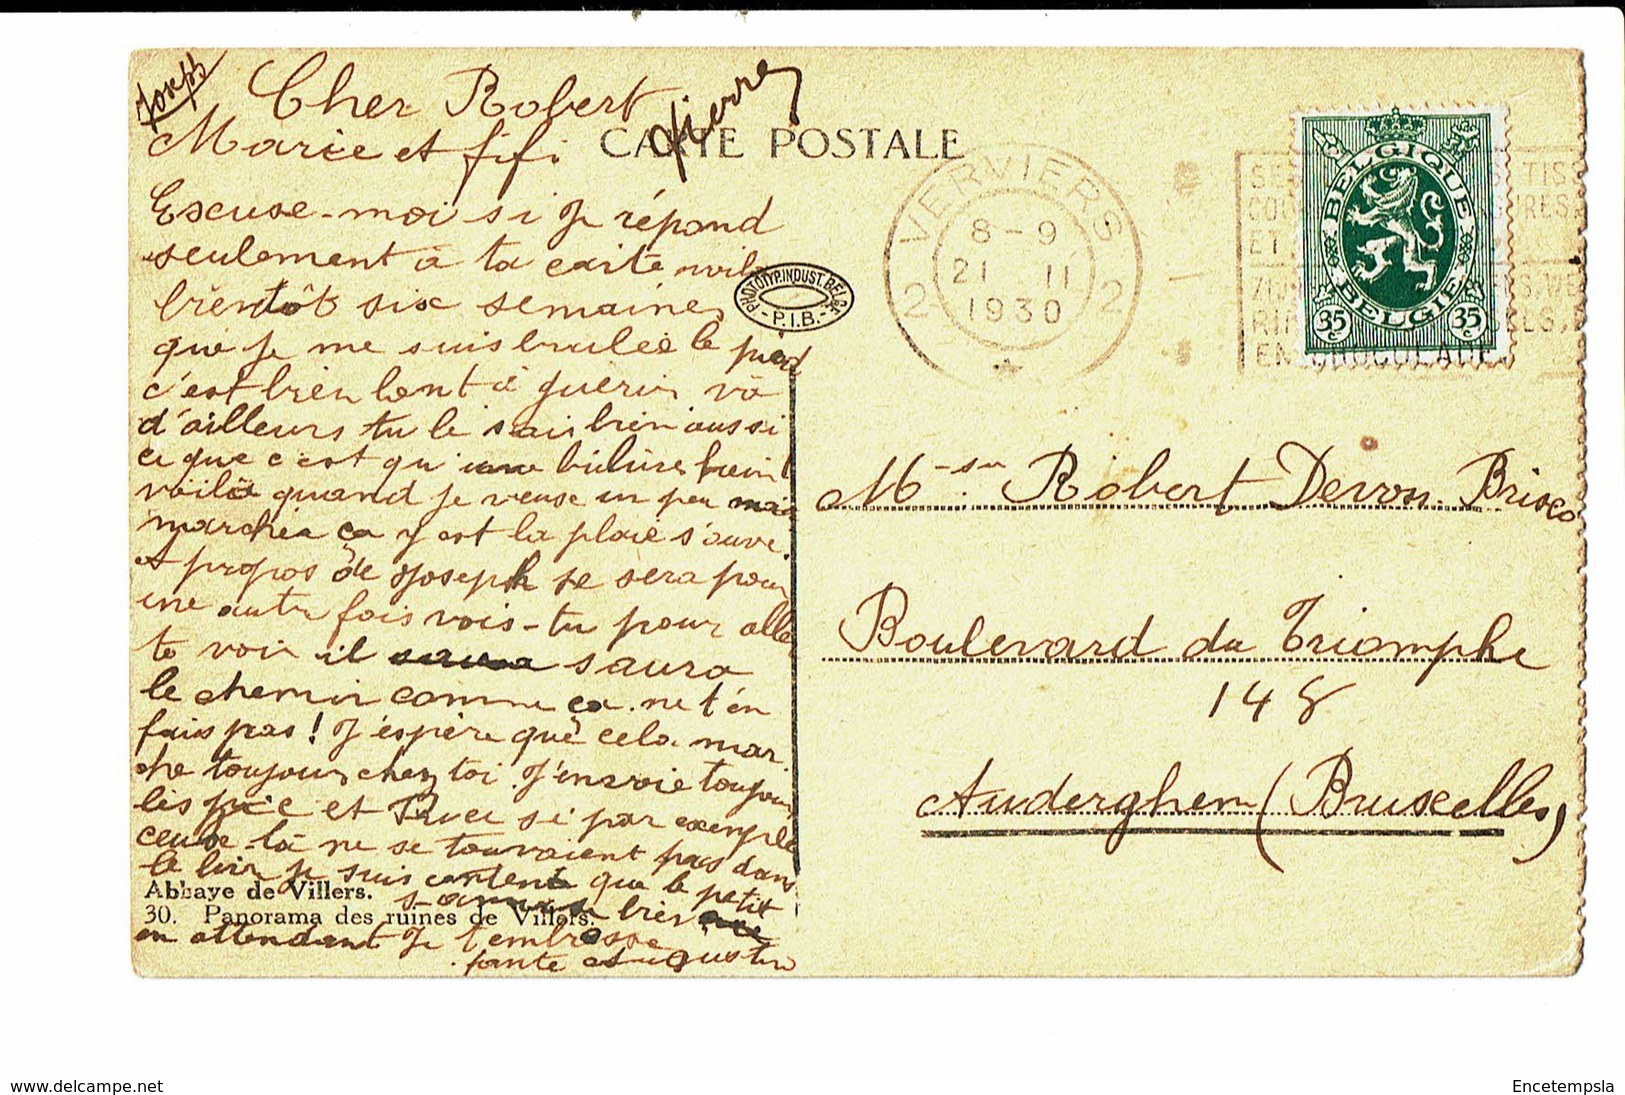 Joseph
Cher Robert
Pierre
Marie et fifi
CARTE POSTALE
Escuse-moi si je répond
seulement à ta carte voila
bientôt six semaines
que je me suis brulée le pied
c'est bien lent à guérir va
d'ailleurs tu le sais bien aussi
ce que c'est qu'une brulure hein!
voilà quand je veuse un peu
marcher ça y est la plaie s'ouvre.
A propos de Joseph se sera pour
une autre fois vois-tu pour alle
te voir il saura
le chemin comme ça. ne t'en
fais pas! J'espère que cela mar
che toujours chez toi. J'envoie toujours
les et si par exemple
ceuse-là ne se touvaient pas dans
le je suis contente que le petit
bien
en attendant je t'embrasse
tante Augustine
Abbaye de Villers.
30. Panorama des ruines de Villers.
PHOTOTYP. INDUST. BELGE
- P.I.B. -
VERVIERS
8-9
21 11
1930
2 2
BELGIQUE
BELGIE
35 c 35 c
TIS
ET
EN CHOCOLADE
M-sr. Robert Devos. Brisco
Boulevard du Triomphe
148
Auderghem (Bruxelles)
www.delcampe.net
Encetempsla